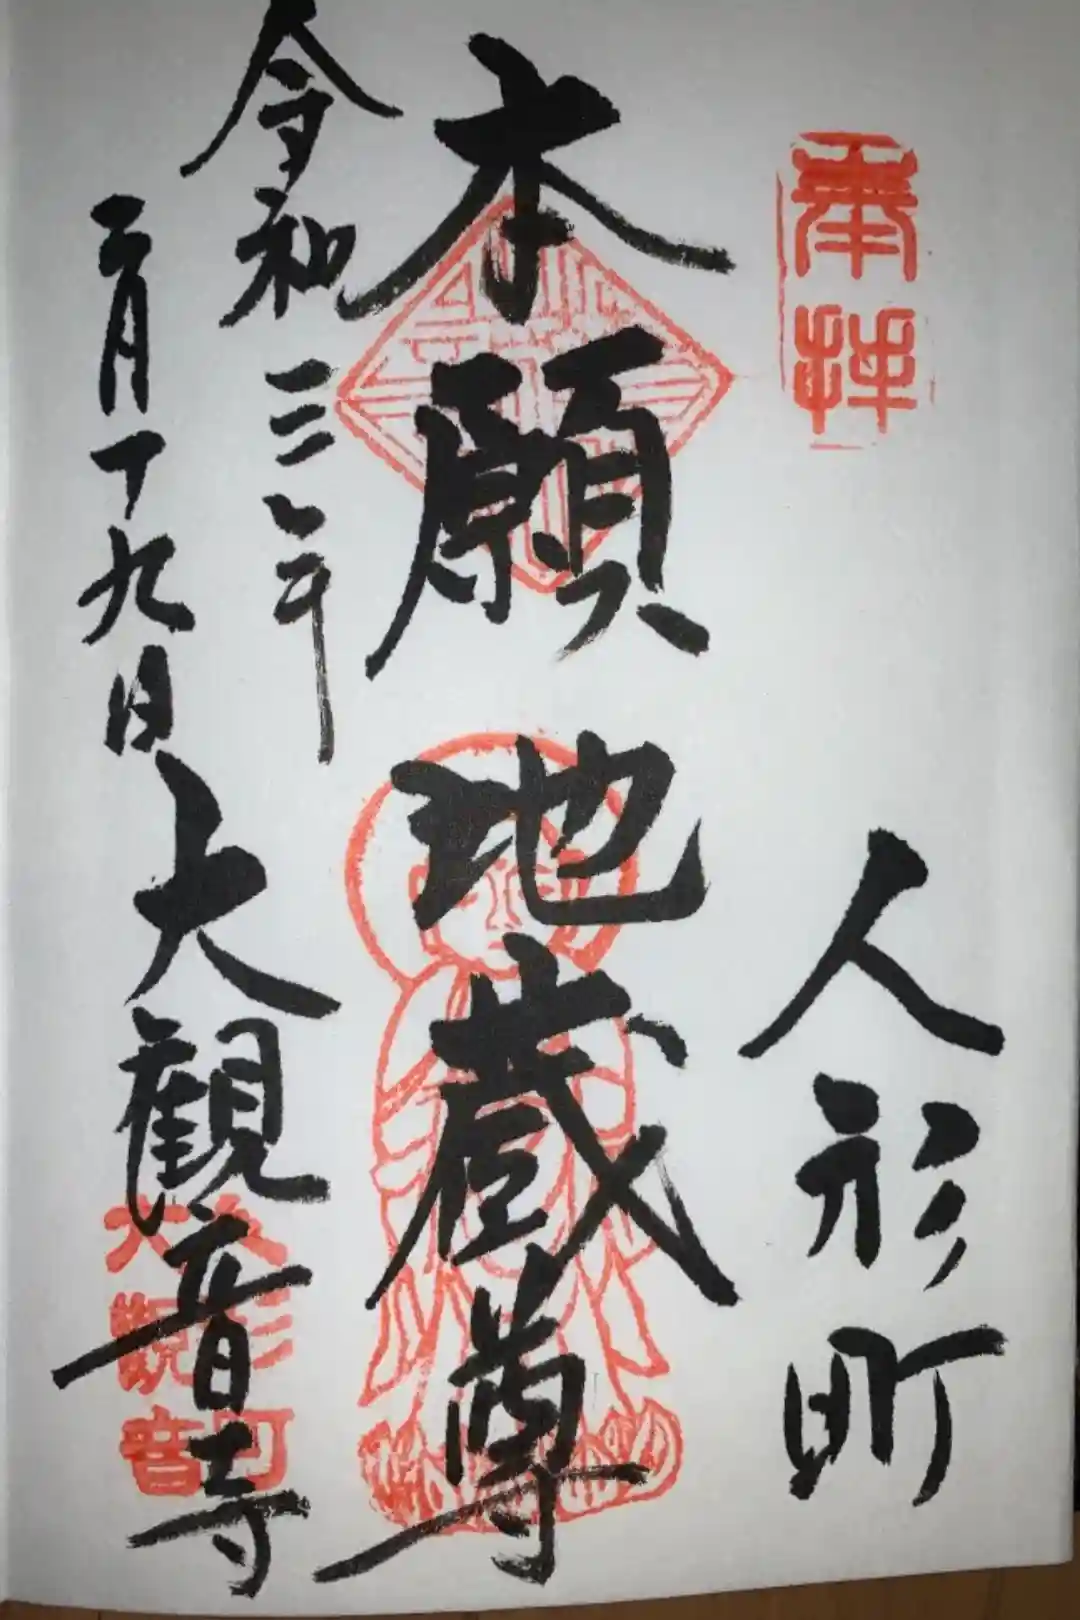 奉拝
人形町
本願地蔵尊
令和三年
月十九日
大観音寺
人形町
大観音